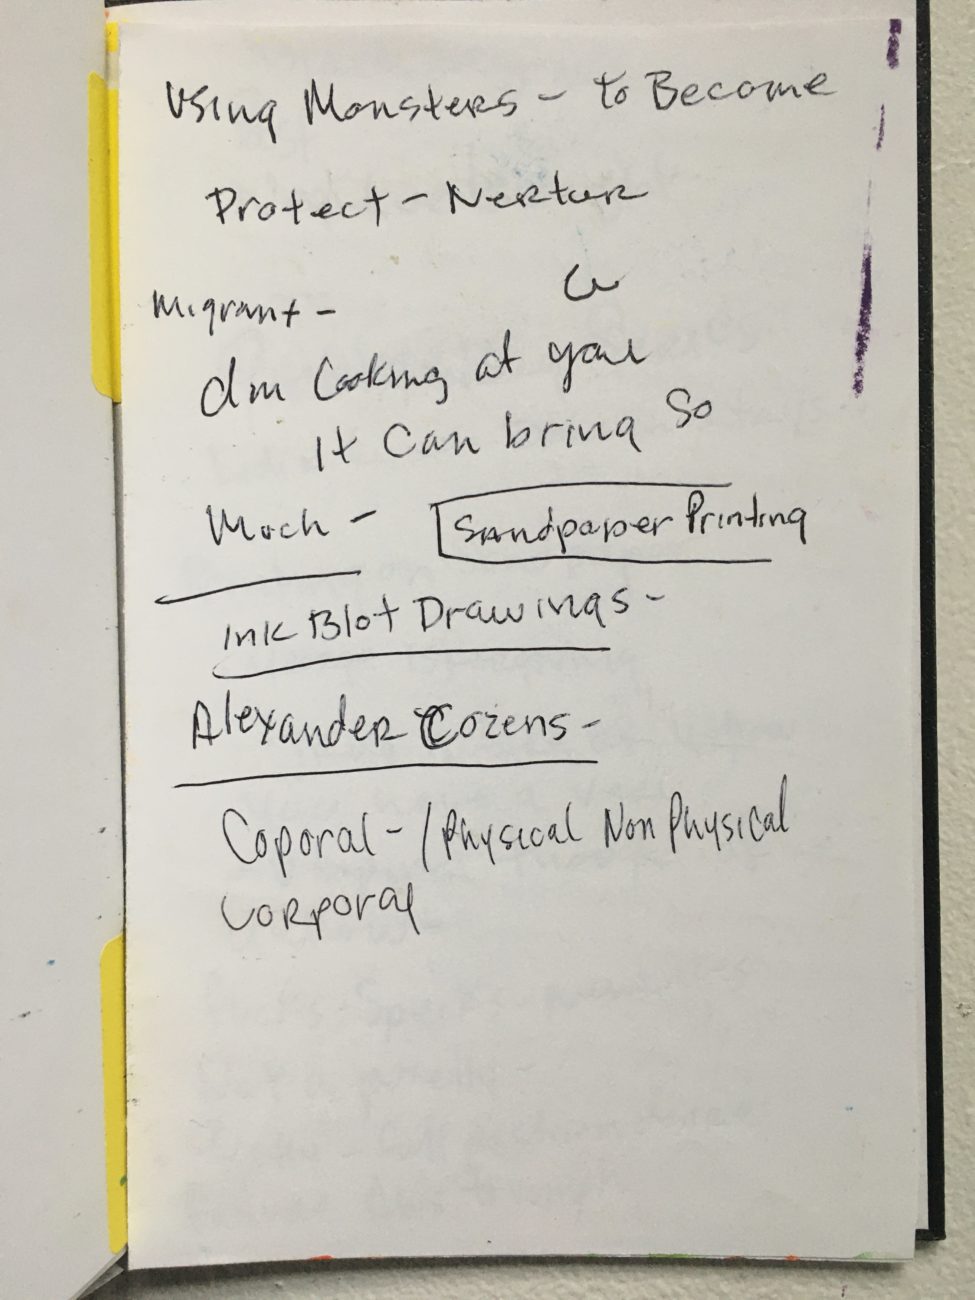 Using Monsters - to Become
Protect - Nertur
Migrant -
Im Looking at you
It Can bring so
Much - Sandpaper Printing
Ink Blot Drawings -
Alexander Cozens -
Coporal - / Physical Non Physical
Corporal